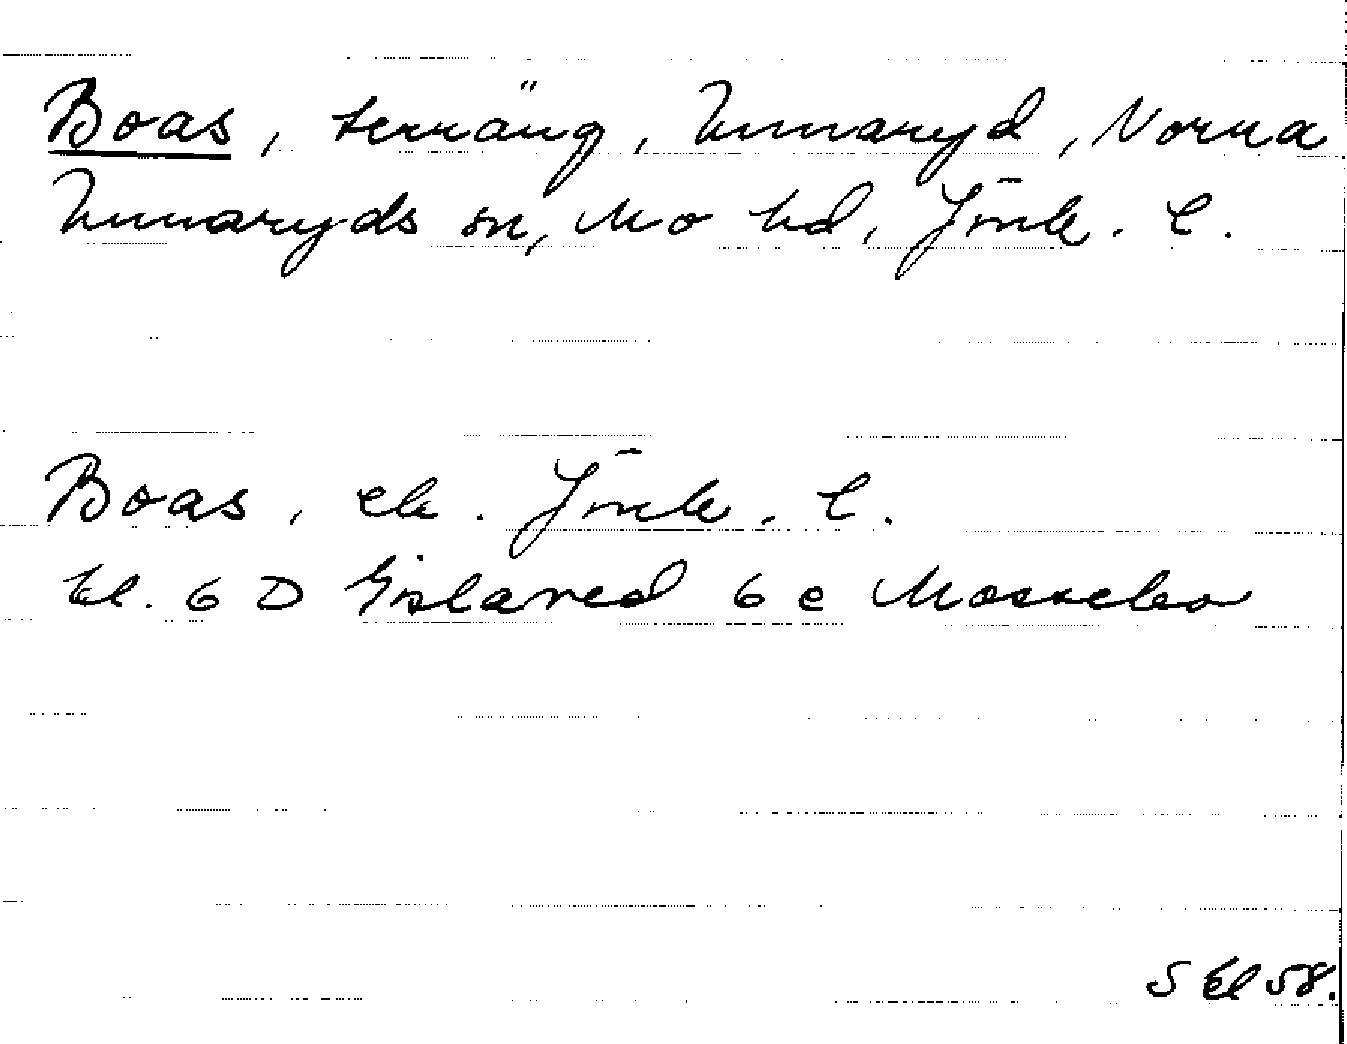 Boas, terräng, Unnaryd, Norra
Unnaryds sn, Mo hd, Jönk. l.
Boas, ek. Jönk. l.
bl. 6 D Gislaved 6 e Mossebo
S El 58.